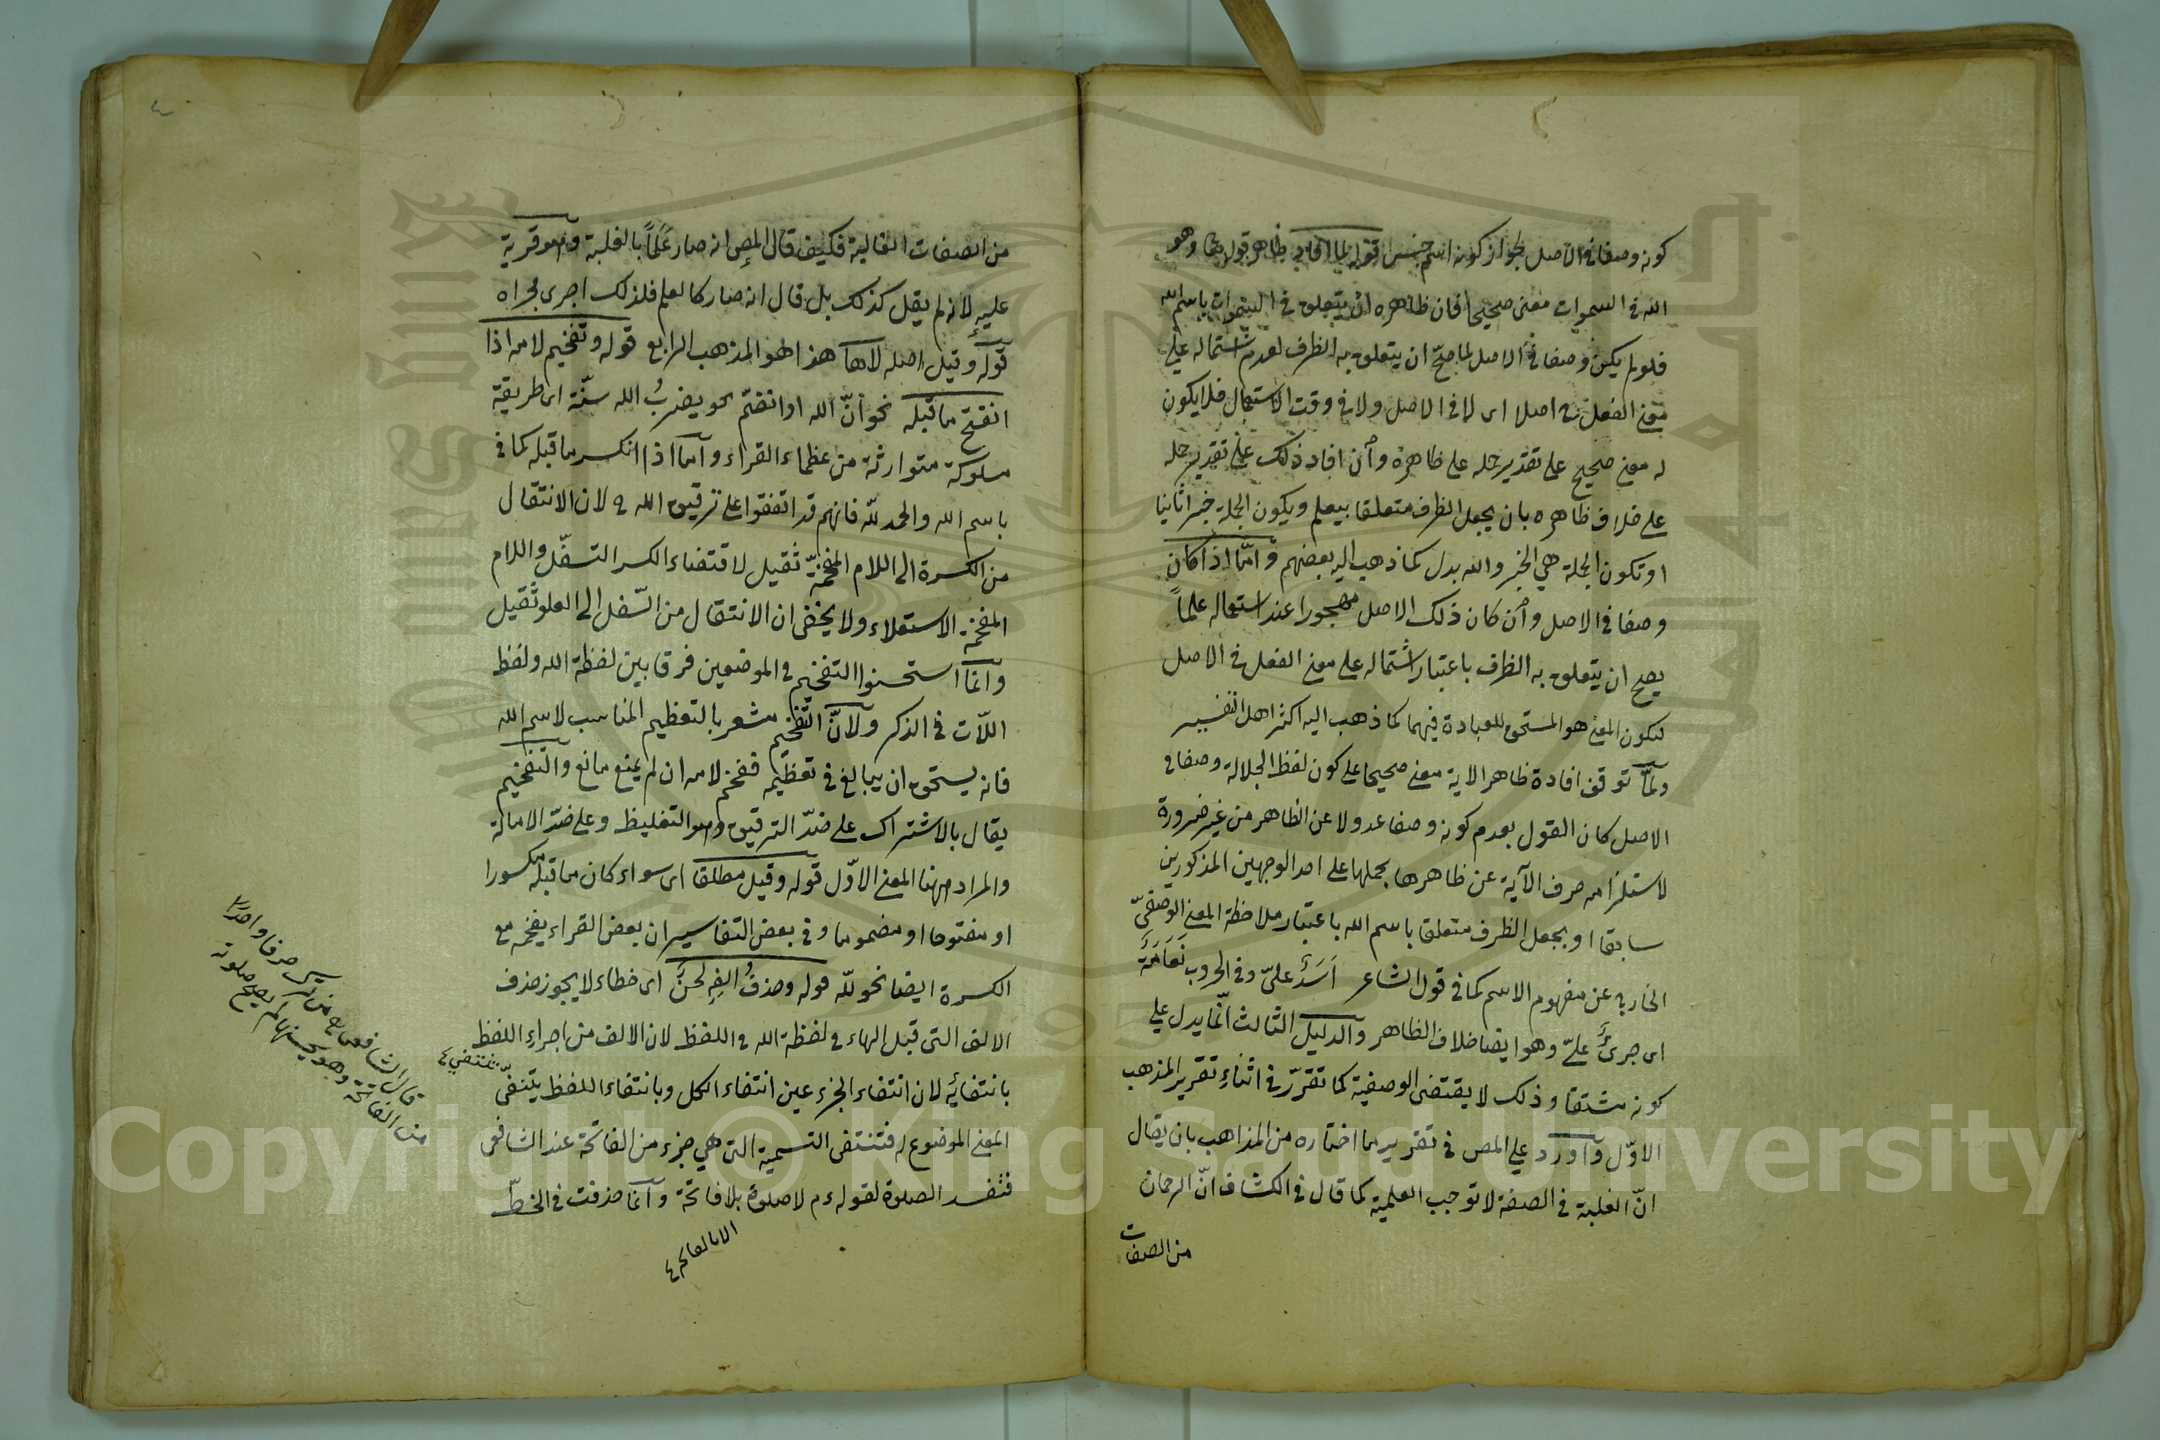 كونه وصفا في الاصل لجواز كونه اسم جنس قوله لما افاد ظاهر قوله تعا وهو
الله في السموات معنى صحيحا فان ظاهره ان يتعلق في السموات باسم الله
فلو لم يكن وصفا في الاصل لما صح ان يتعلق به الظرف لعدم اشتماله على
معنى الفعل ح اصلا اى لا في الاصل ولا في وقت الاستعمال فلا يكون
له معنى صحيح على تقدير حمله على ظاهره وان افاد ذلك على تقدير حمله
على خلاف ظاهره بان يجعل الظرف متعلقا بيعلم ويكون الجملة خبرا ثانيا
او تكون الجملة هي الخبر والله بدل كما ذهب اليه بعضهم واما اذا كان
وصفا في الاصل وان كان ذلك الاصل مهجورا عند استعماله علماً
يصح ان يتعلق به الظرف باعتبار اشتماله على معنى الفعل في الاصل
فيكون المعنى هو المستحق للعبادة فيهما كما ذهب اليه اكثر اهل التفسير
ولمّا توقف افادة ظاهر الاية معنى صحيحا على كون لفظ الجلالة وصفا في
الاصل كان القول بعدم كونه وصفا عدولا عن الظاهر من غير ضرورة
لاستلزامه صرف الآية عن ظاهرها بحملها على احد الوجهين المذكورين
سابقا او بجعل الظرف متعلقا باسم الله باعتبار ملاحظة المعنى الوصفيّ
الخارج عن مفهوم الاسم كما في قول الشاعر اَسَدٌ علىّ وفي الحروب نَعَامَةٌ
اى جرئٌ علىّ وهو ايضا خلاف الظاهر والدليل الثالث انّما يدل على
كونه مشتقا وذلك لا يقتضى الوصفية كما تقرّر في اثناء تقرير المذهب
الاوّل واورد على المص في تقرير ما اختاره من المذاهب بان يقال
انّ الغلبة في الصفة لا توجب العلمية كما قال في الكشاف انّ الرحمان
من الصفات
من الصفات الغالبة فكيف قال المص انه صار عَلَماً بالغلبة وهو فرية
عليه لانه لم يقل كذلك بل قال انه صار كالعلم فلذلك اجرى مجراه
قوله وقيل اصله لاها هذا هو المذهب الرابع قوله وتفخيم لامه اذا
انفتح ما قبله نحو انّ الله او انضمّ نحو يضربُ الله سنّة اى طريقة
مسلوكة متوارثة من عظماء القراء واما اذا انكسر ما قبله كما في
باسم الله والحمد للّه فانهم قد اتفقوا على ترقيق الله ح لان الانتقال
من الكسرة الى اللام المفخمة ثقيل لاقتضاء الكسر التسفّل واللام
المفخمة الاستعلاء ولا يخفى ان الانتقال من السّفل الى العلو ثقيل
وانما استحسنوا التفخيم في الموضعين فرقا بين لفظة الله ولفظ
اللّات في الذكر ولانّ التفخيم مشعر بالتعظيم المناسب لاسم الله
فانه يستحق ان يبالغ في تعظيمه ففخم لامه ان لم يمنع مانع والتفخيم
يقال بالاشتراك على ضدّ الترقيق وهو التغليظ وعلى ضدّ الامالة
والمراد ههنا المعنى الاوّل قوله وقيل مطلقا اى سواء كان ما قبله مكسورا
او مفتوحا او مضموما وفي بعض التفاسير ان بعض القراء يفخمه مع
الكسرة ايضا نحو للّه قوله وحذفُ الفِهِ لحنٌ اى خطاء لا يجوز حذف
الالف التى قبل الهاء في لفظة الله في اللفظ لان الالف من اجزاء اللفظ
بانتفائه لان انتفاء الجزء عين انتفاء الكل وبانتفاء اللفظ ينتفى
المعنى الموضوع له فتنتفى التسمية التى هي جزء من الفاتحة عند الشافعى
فتفسد الصلوة لقوله ءم لا صلوة بلا فاتحة وانما حذفت في الخطّ
قال الشافعى من ترك حرفا واحدا
من الفاتحة وهو يحسنها لم يصح صلوته